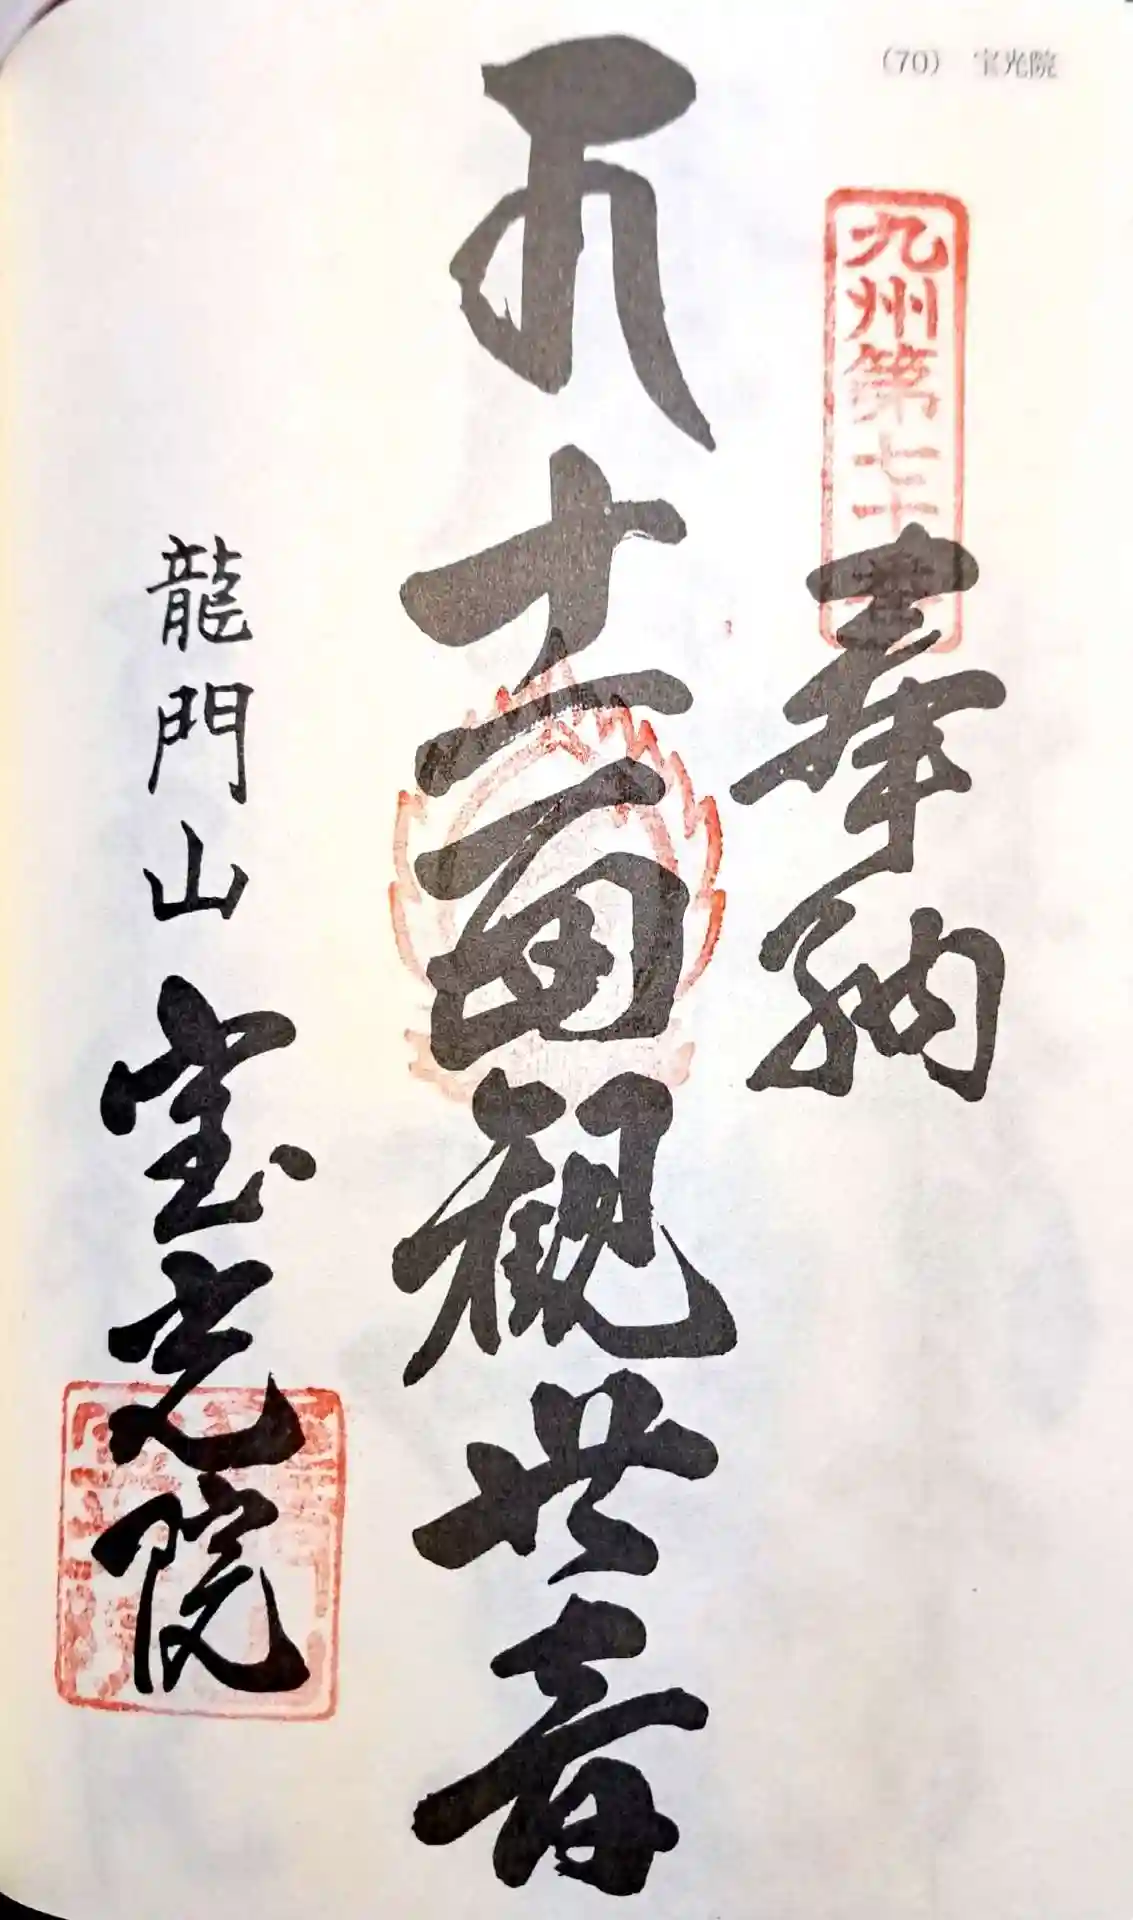 (70) 宝光院
九州第七十番
奉納
十一面観世音
龍門山 宝光院